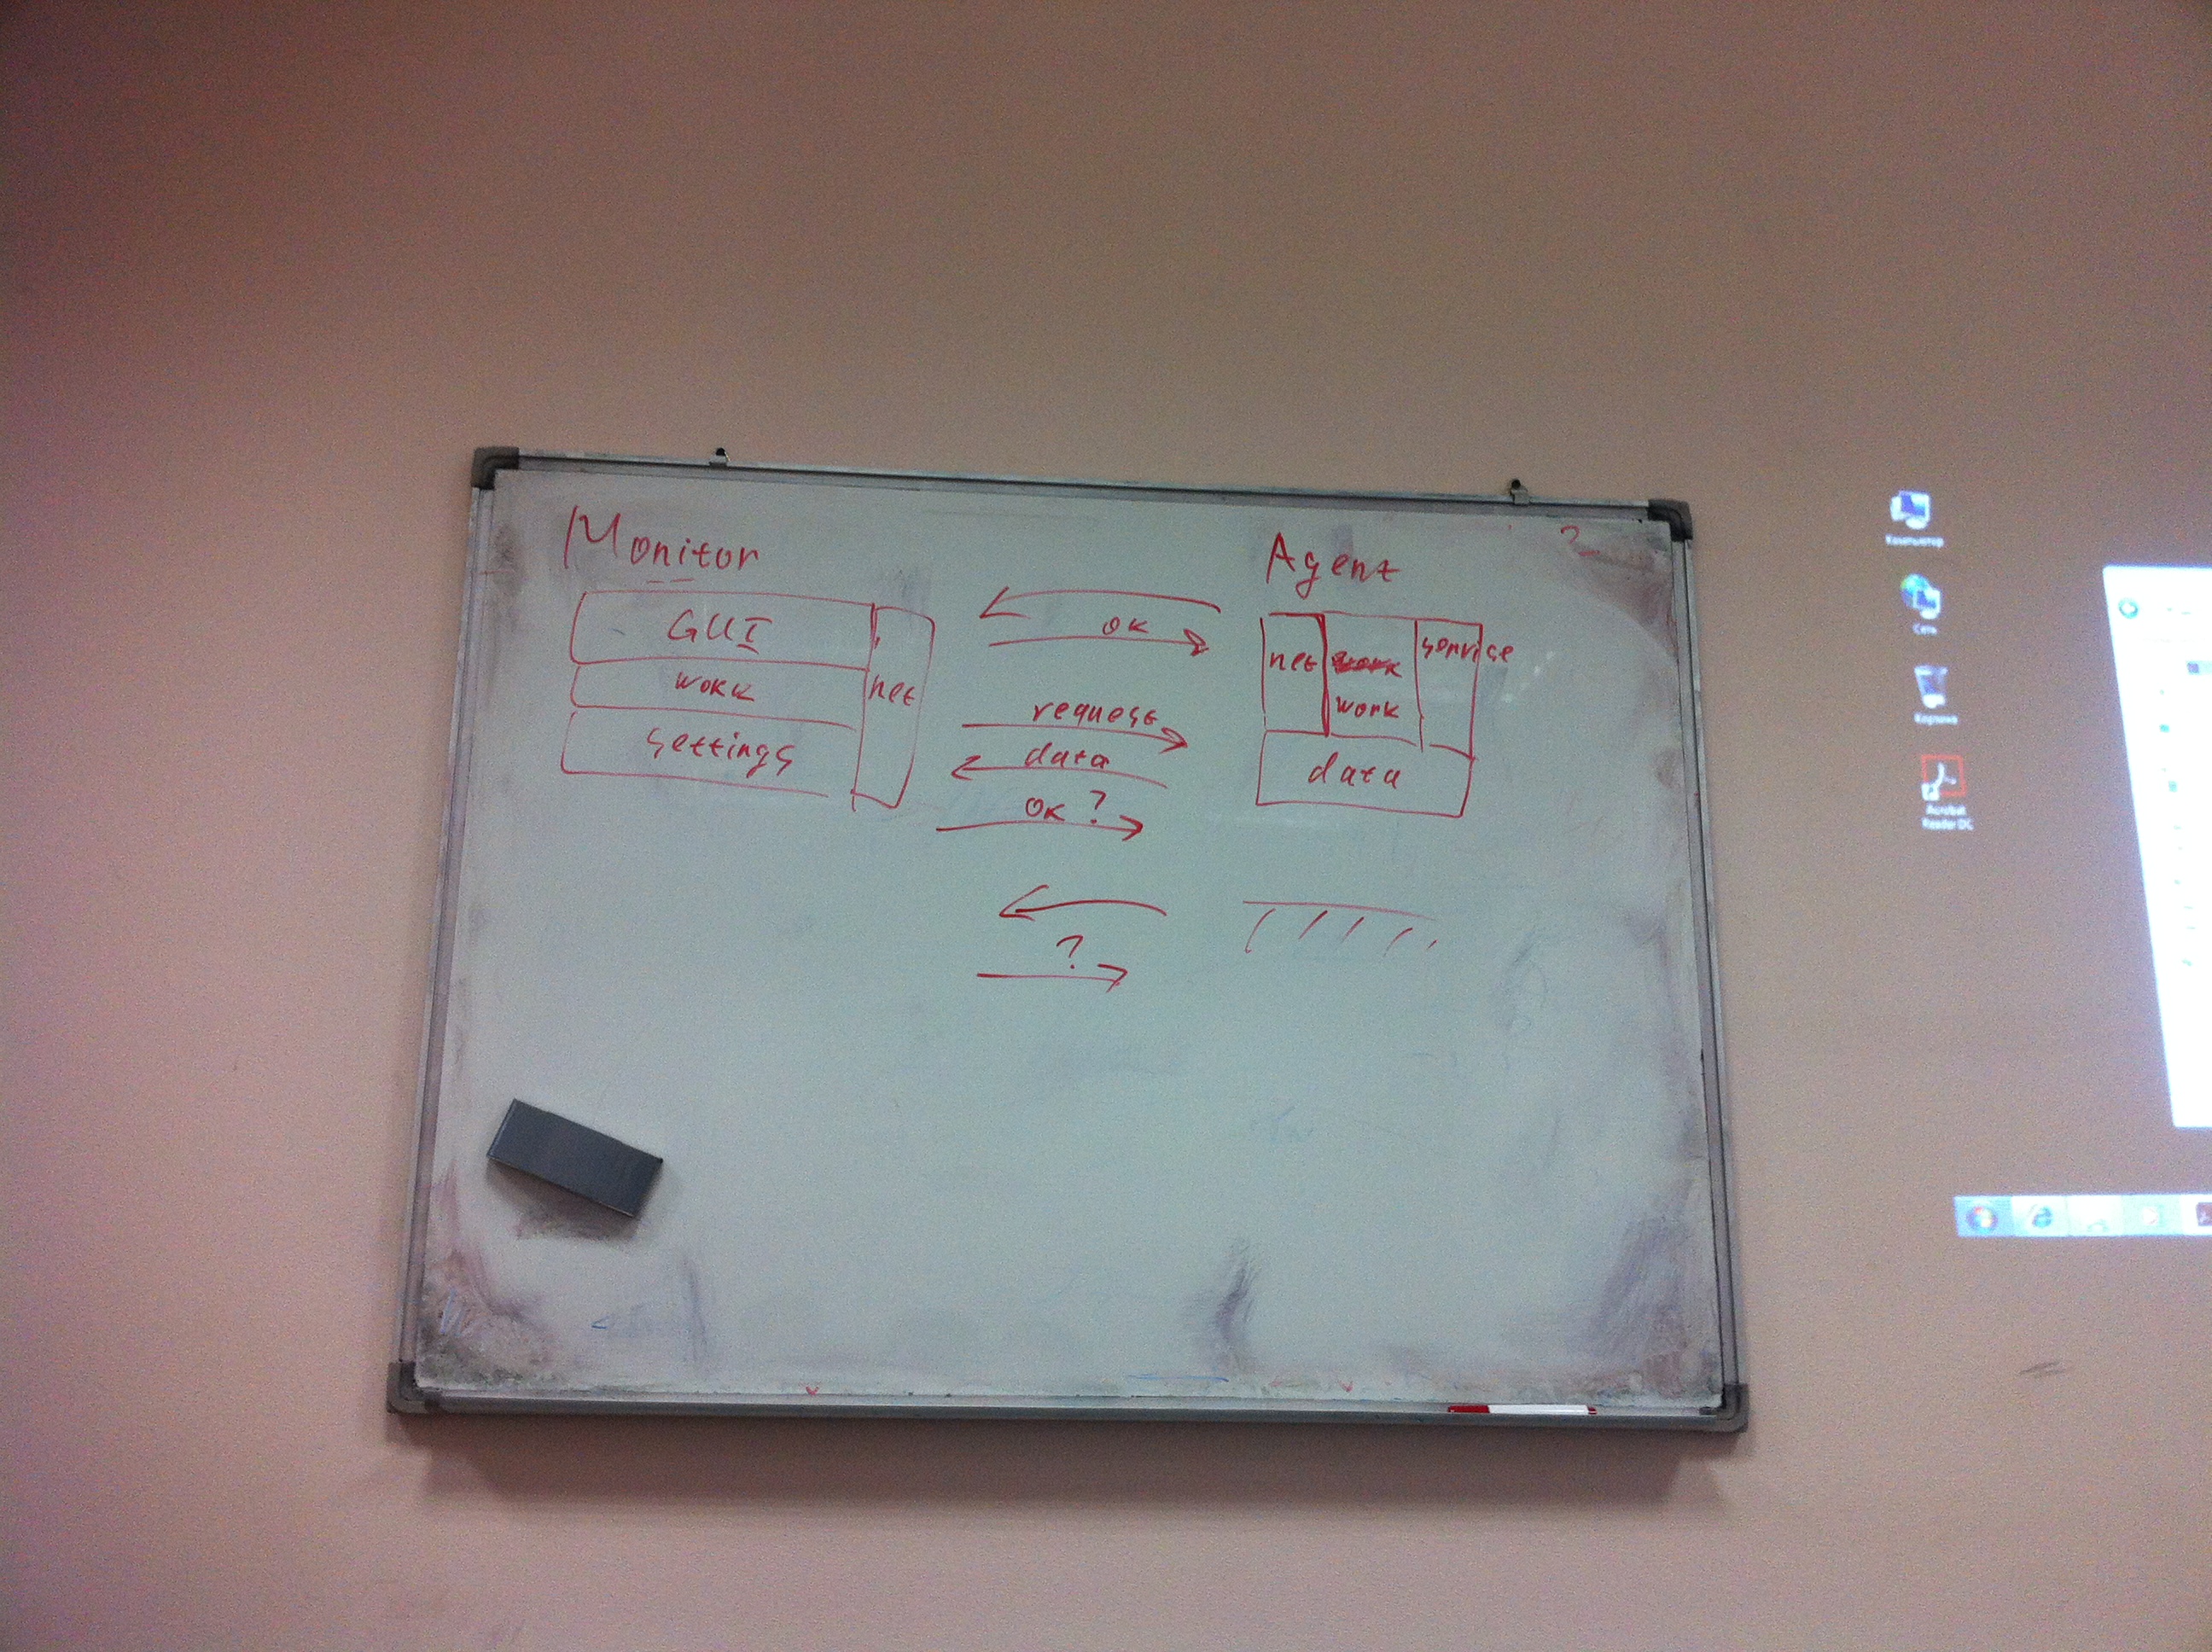 Monitor
GUI
work
settings
net
ok
request
data
OK ?
?
Agent
?
net
work
work
service
data
Компьютер
Сеть
Корзина
Acrobat
Reader DC